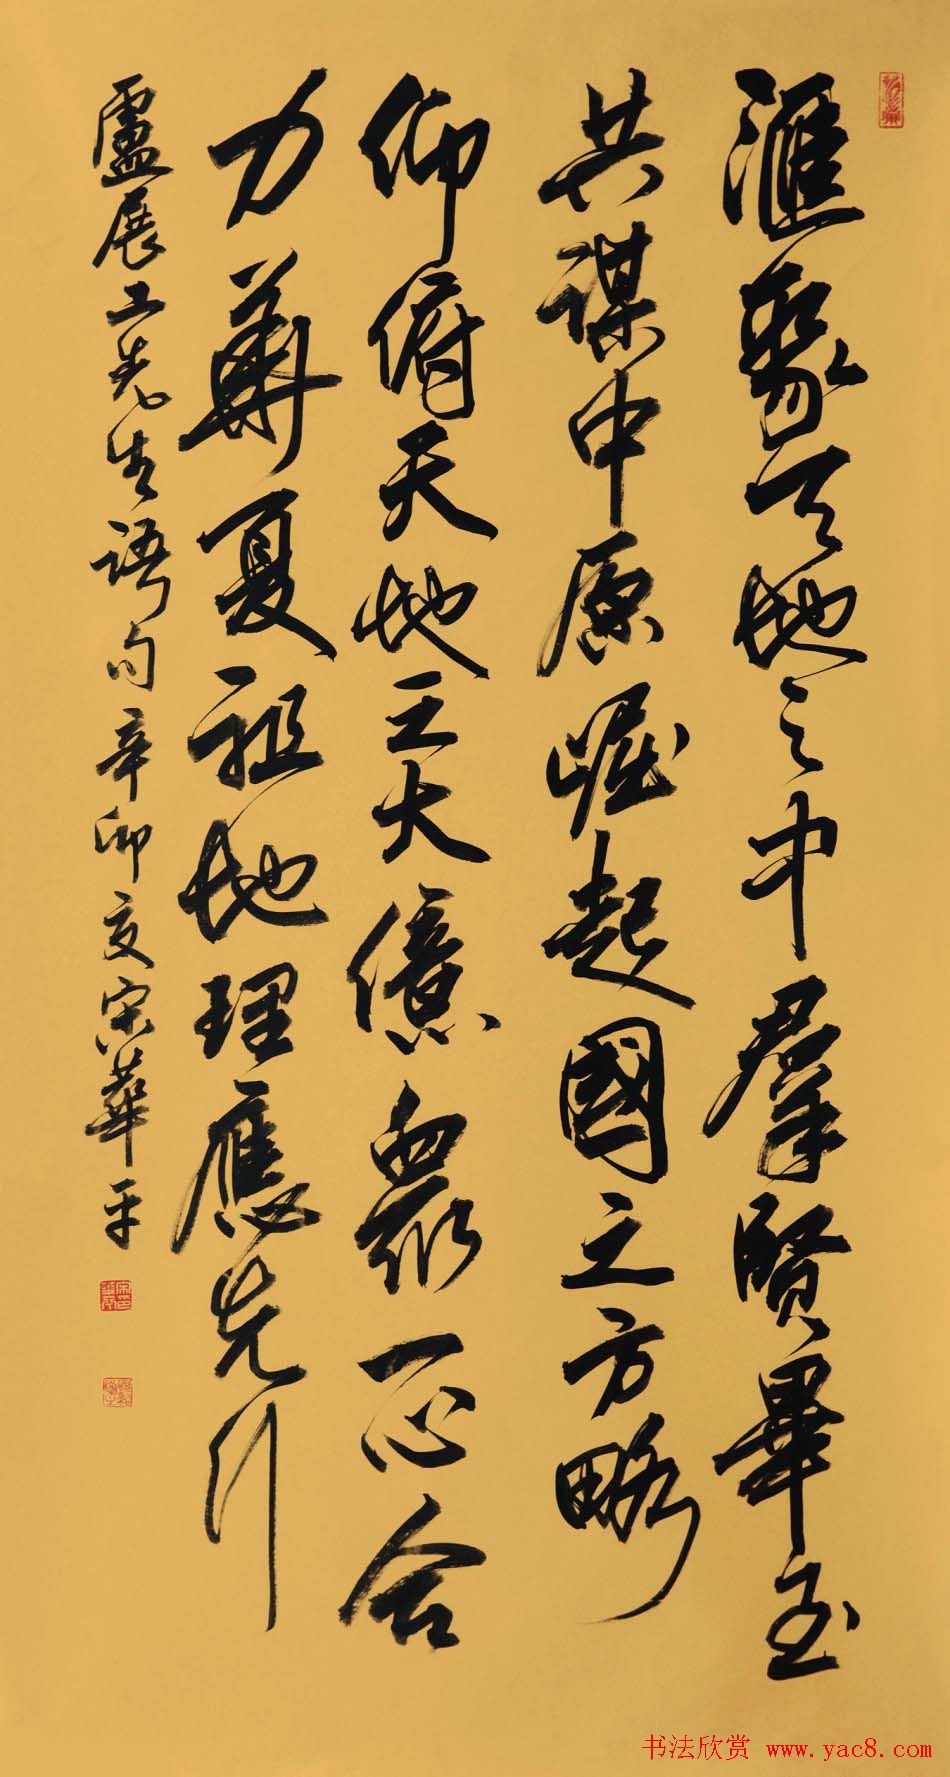 滙聚天地之中群賢畢至
共謀中原崛起國之方略
仰俯天地之大億衆一心合
力華夏祖地理應先行
盧展工先生語句辛卯夏宋華平
书法欣赏 www.yac8.com